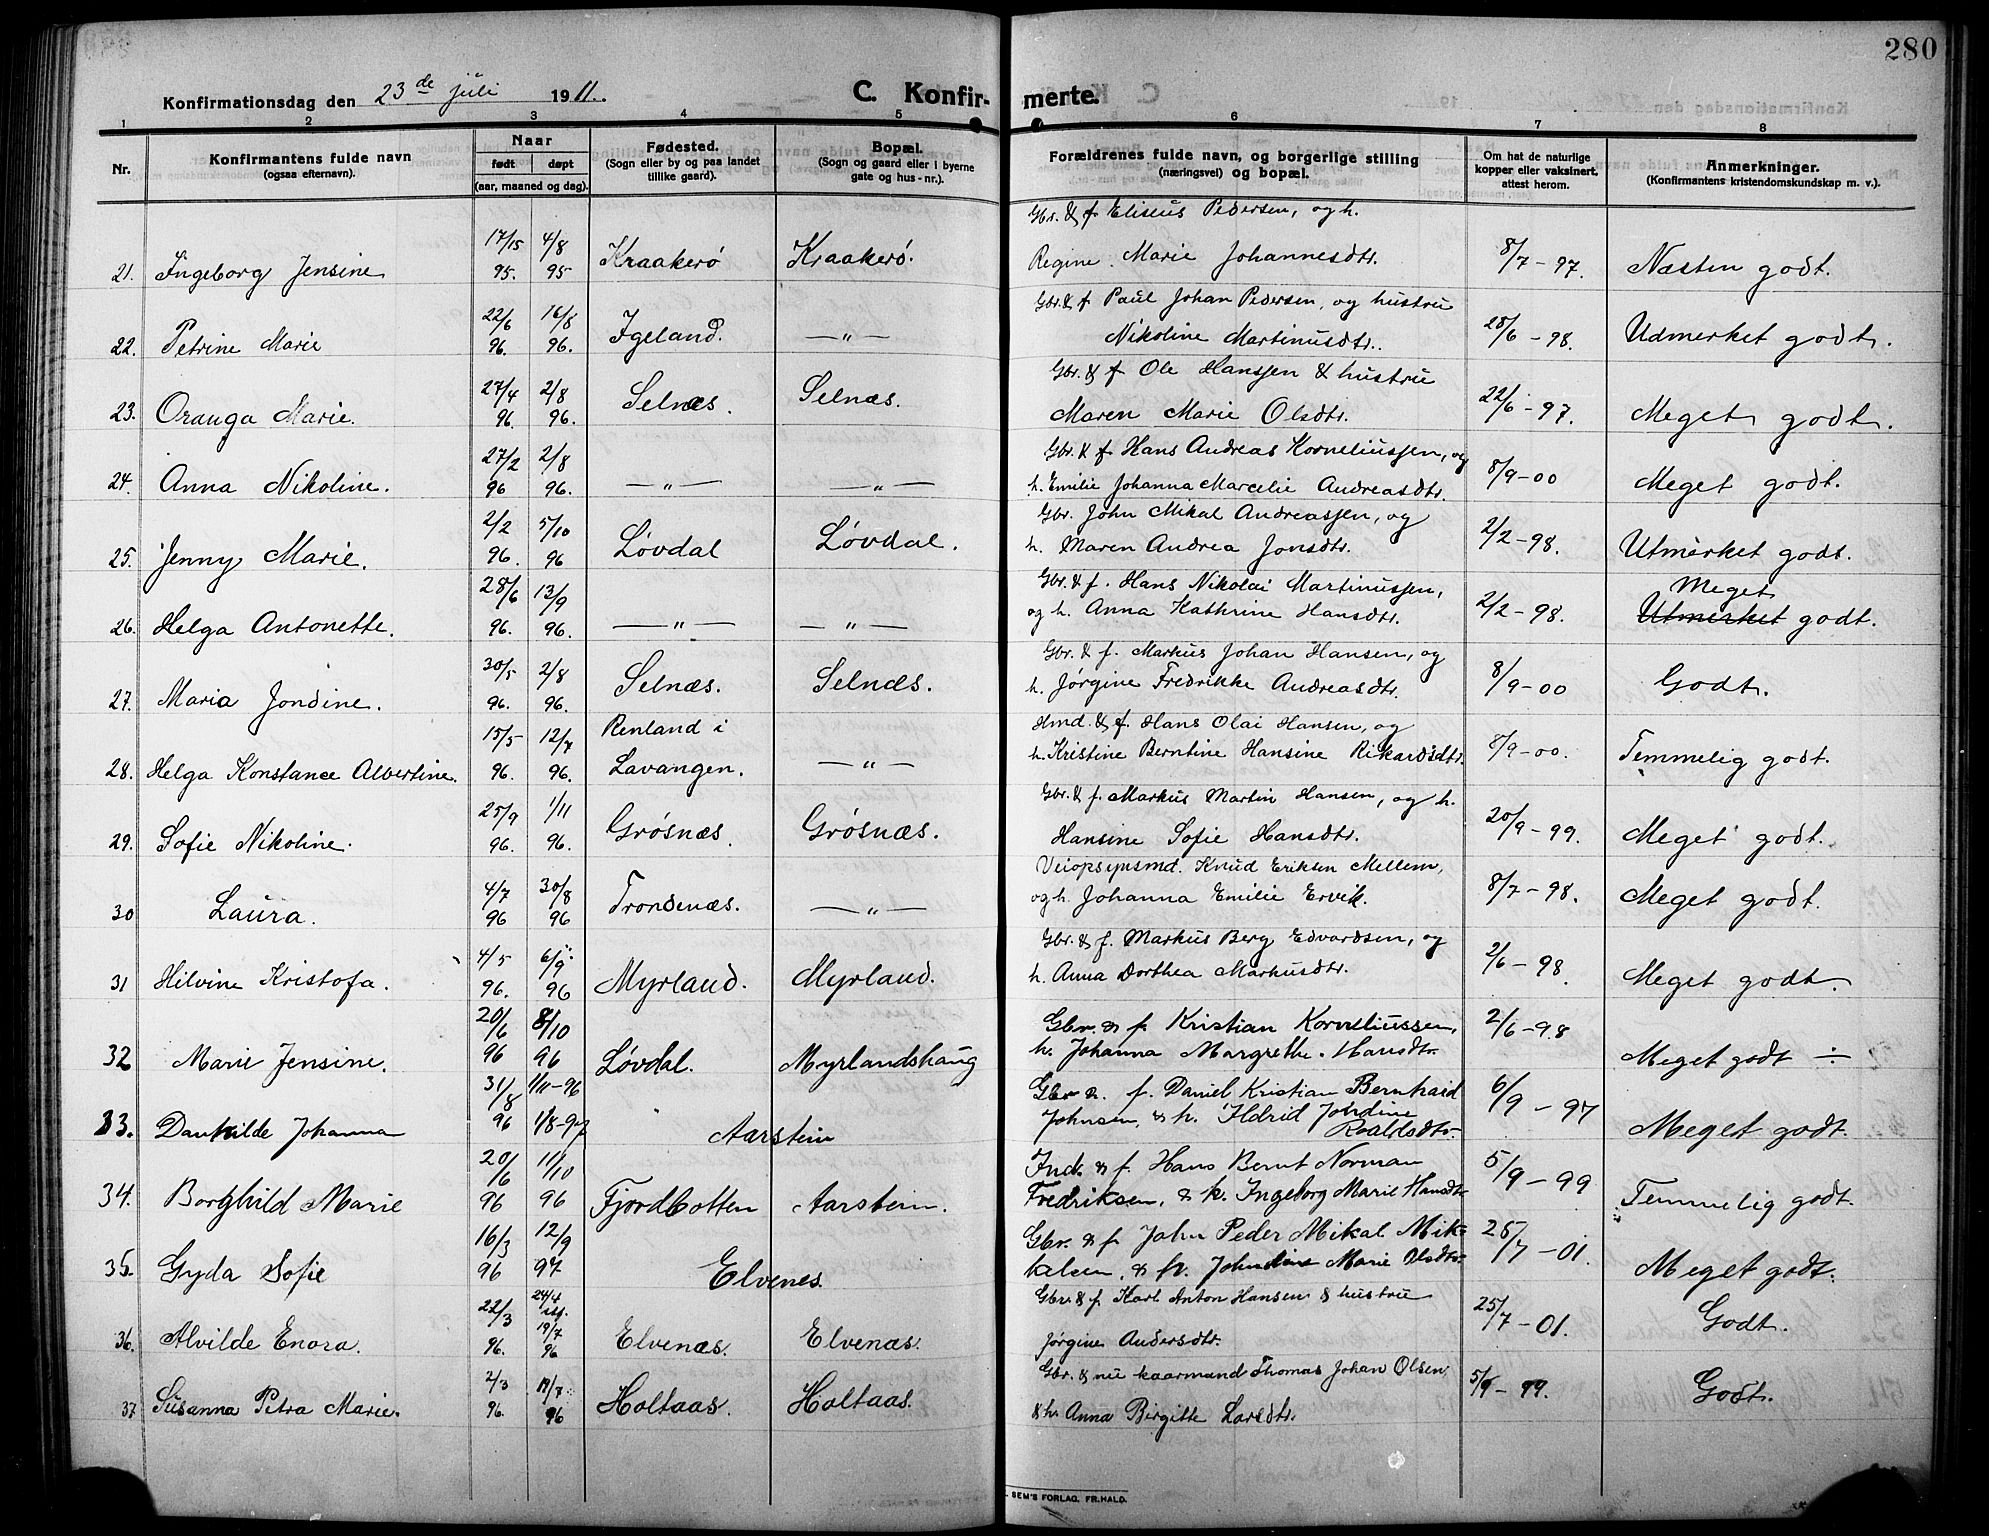 280
Konfirmationsdag den 23de juli 1911.
C. Konfirmerte.
1 2 3 4 5 6 7 8
Nr.
Konfirmantens fulde navn
(ogsaa efternavn).
Naar
født døpt
(aar, maaned og dag).
Fødested.
(Sogn eller by og paa landet
tillike gaard).
Bopæl.
(Sogn og gaard eller i byerne
gate og hus-nr.).
Forældrenes fulde navn, og borgerlige stilling
(næringsvei) og bopæl.
Om hat de naturlige
kopper eller vaksinert,
attest herom.
Anmerkninger.
(Konfirmantens kristendomskundskap m. v.).
Gbr. & f Eliseus Pedersen, og h.
21. Ingeborg Jensine 17/15 95. 4/8 95 Kraakerø Kraakerø. Regine Marie Johannesdtr. 8/7-97. Næsten godt.
Gbr. & f Paul Johan Pedersen, og hustru
22. Petrine Marie 22/6 96. 16/8 96. Igeland. —"— Nikoline Martinusdtr. 28/6-98. Udmerket godt.
Gbr. & f Ole Hanssen & hustru
23. Oranga Marie. 27/4 96. 2/8 96. Selnæs. Selnæs. Maren Marie Olsdtr. 22/6-97. Meget godt.
Gbr. & f Hans Andreas Korneliussen, og
24. Anna Nikoline. 27/2 96 2/8 96. —"— —"— h. Emilie Johanna Marcelie Andreasdtr. 8/9-00 Meget godt.
Gbr. John Mikal Andreassen, og
25. Jenny Marie. 2/2 96. 5/10 96 Løvdal Løvdal. h. Maren Andrea Jonsdtr. 2/2-98. Utmerket godt.
Gbr. & f. Hans Nikolai Martinussen, Meget
26. Helga Antonette. 28/6 96. 13/9 96. —"— —"— og h. Anna Kathrine Hansdtr. 2/2-98. Utmerket godt.
Gbr. & f. Markus Johan Hansen, og
27. Maria Jondine. 30/5 96. 2/8 96. Selnæs. Selnæs. h. Jørgine Fredrikke Andreasdtr. 8/9-00 Godt.
Renland i Hmd. & f. Hans Olai Hansen, og
28. Helga Konstance Albertine. 15/5 96. 12/7 96. Lavangen. —"— h. Kristine Berntine Hansine Rikardsdtr. 8/9-00. Temmelig godt.
Gbr. & f. Markus Martin Hansen, og h.
29. Sofie Nikoline. 25/9 96. 1/11 96. Grøsnæs. Grøsnæs. Hansine Sofie Hansdtr. 20/9-99. Meget godt.
Veiopsynsmd. Knud Eriksen Mellem,
30 Laura. 4/7 96 30/8 96 Trondenæs. —"— og h. Johanna Emilie Ervik. 8/7-98. Meget godt.
Gbr. & f. Markus Berg Edvardsen, og
31 Hilvine Kristofa. 4/5 96. 6/9 96 Myrland. Myrland. h. Anna Dorthea Markusdtr. 2/6-98. Meget godt.
Gbr. & f. Kristian Korneliussen,
32 Marie Jensine. 20/6 96 8/10 96 Løvdal. Myrlandshaug h. Johanna Margrethe Hansdtr. 2/6-98 Meget godt ÷
Gbr. & f. Daniel Kristian Bernhard
33. Dankilde Johanna 31/8 96 1/11-96 1/8-97 Aarstein Johnsen, & h. Ildrid Jondine Roaldsdtr. 6/9-97 Meget godt.
Ind. & f. Hans Bernt Norman
34. Borghild Marie 20/6 96 11/10 96 Fjordbotten Aarstein. Fredriksen, & h. Ingeborg Marie Hansdtr. 5/9-99 Temmelig godt.
Gbr. & f. John Peder Mikal Mik-
35. Gyda Sofie 16/3 96 12/9 97 Elvenes. kalsen, & h. Johndine Marie Olsdtr. 25/7-01. Meget godt.
Gbr. & f. Karl Anton Hansen & hustru
36. Alvilde Enora. 22/3 96. 24/4 19/7 96 Elvenæs. Elvenæs. Jørgine Andersdtr. 25/7-01. Godt.
Gbr. & nu kaarmand Thomas Johan Olsen
37 Susanna Petra Marie. 2/3 96. 19/7 96 Holtaas. Holtaas. & h. Anna Birgitte Larsdtr. 5/9-99. Godt.
SEM'S FORLAG, FR.HALD.